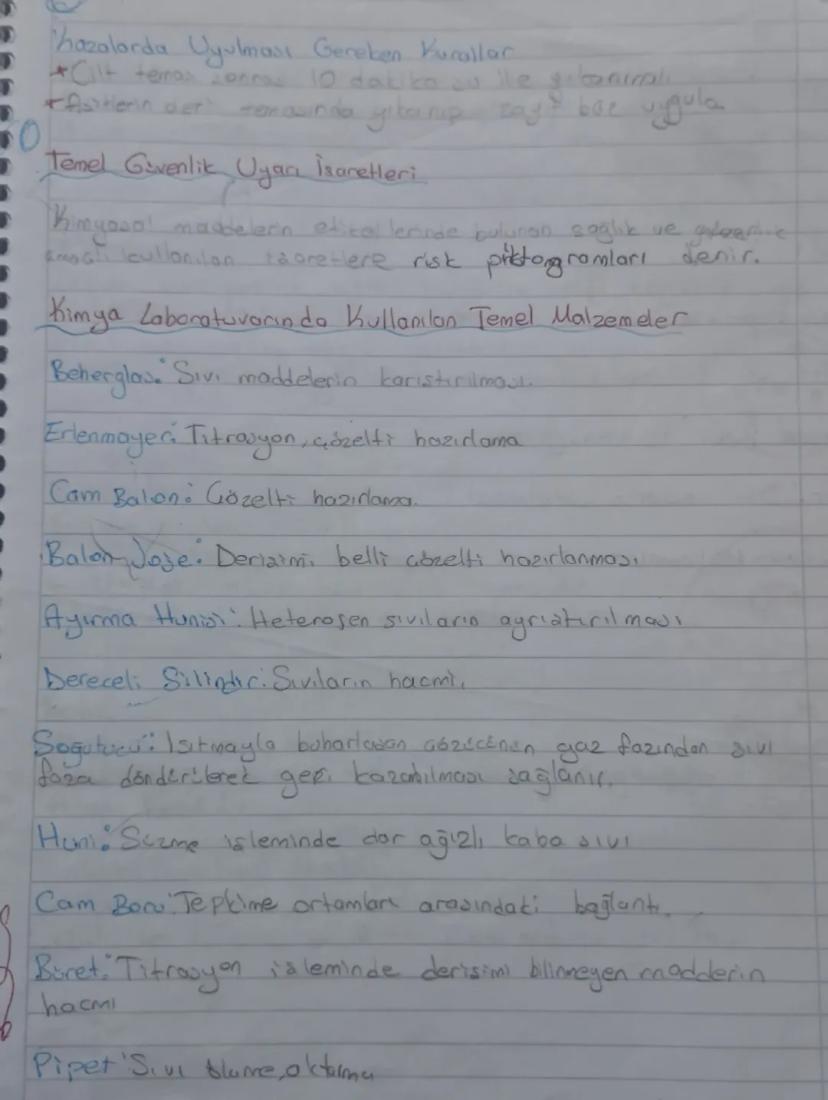 Kazalarda Uyulması Gereken Kurallar
*Cilt teması sonrası 10 dakika su ile yıkanmalı
*Asitlerin deri temasında yıkanıp zayıf baz uygula
Temel Güvenlik Uyarı İşaretleri
Kimyasal maddelerin etiketlerinde bulunan sağlık ve güvenlik
amaçlı kullanılan işaretlere risk piktogramları denir.
Kimya Laboratuvarında Kullanılan Temel Malzemeler
Beherglas: Sıvı maddelerin karıştırılması.
Erlenmayer: Titrasyon, çözelti hazırlama
Cam Balon: Çözelti hazırlama.
Balon Joje: Derişimi belli çözelti hazırlanması.
Ayırma Hunisi: Heterojen sıvıların ayrıştırılması
Dereceli Silindir: Sıvıların hacmi.
Soğutucu: Isıtmayla buharlaşan çözücünün gaz fazından sıvı
faza döndürülerek geri kazanılması sağlanır.
Huni: Süzme işleminde dar ağızlı kaba sıvı
Cam Boru: Tepkime ortamları arasındaki bağlantı.
Büret: Titrasyon işleminde derişimi bilinmeyen madderin
hacmi
Pipet: Sıvı ölçme, aktarma